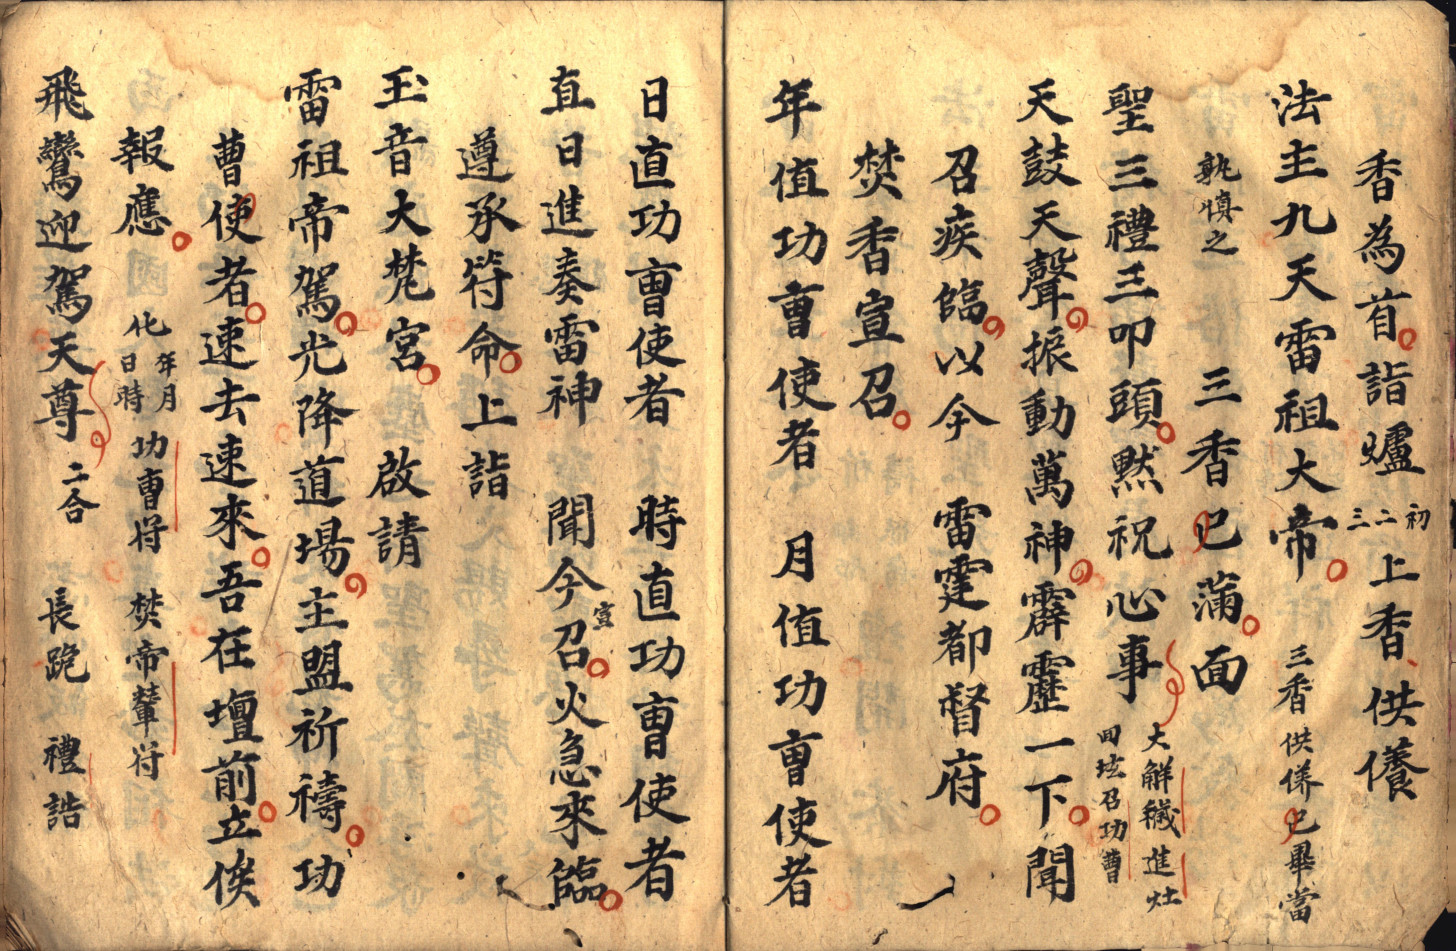 香為首詣爐初二三上香供養
法主九天雷祖大帝三香供養已畢當
執慎之 三香已滿面
聖三禮三叩頭黙祝心事大解穢進灶回坛召功曹
天鼓天聲振動萬神霹靂一下聞
召疾臨以今 雷霆都督府
焚香宣召
年值功曹使者 月值功曹使者
日直功曹使者 時直功曹使者
直日進奏雷神 聞今宣召火急來臨
遵承符命上詣
玉音大梵宮 啟請
雷祖帝駕光降道場主盟祈禱功
曹使者速去速來吾在壇前立俟
報應 化年月日時功曹符 焚帝輦符
飛鸞迎駕天尊二合 長跪 禮誥